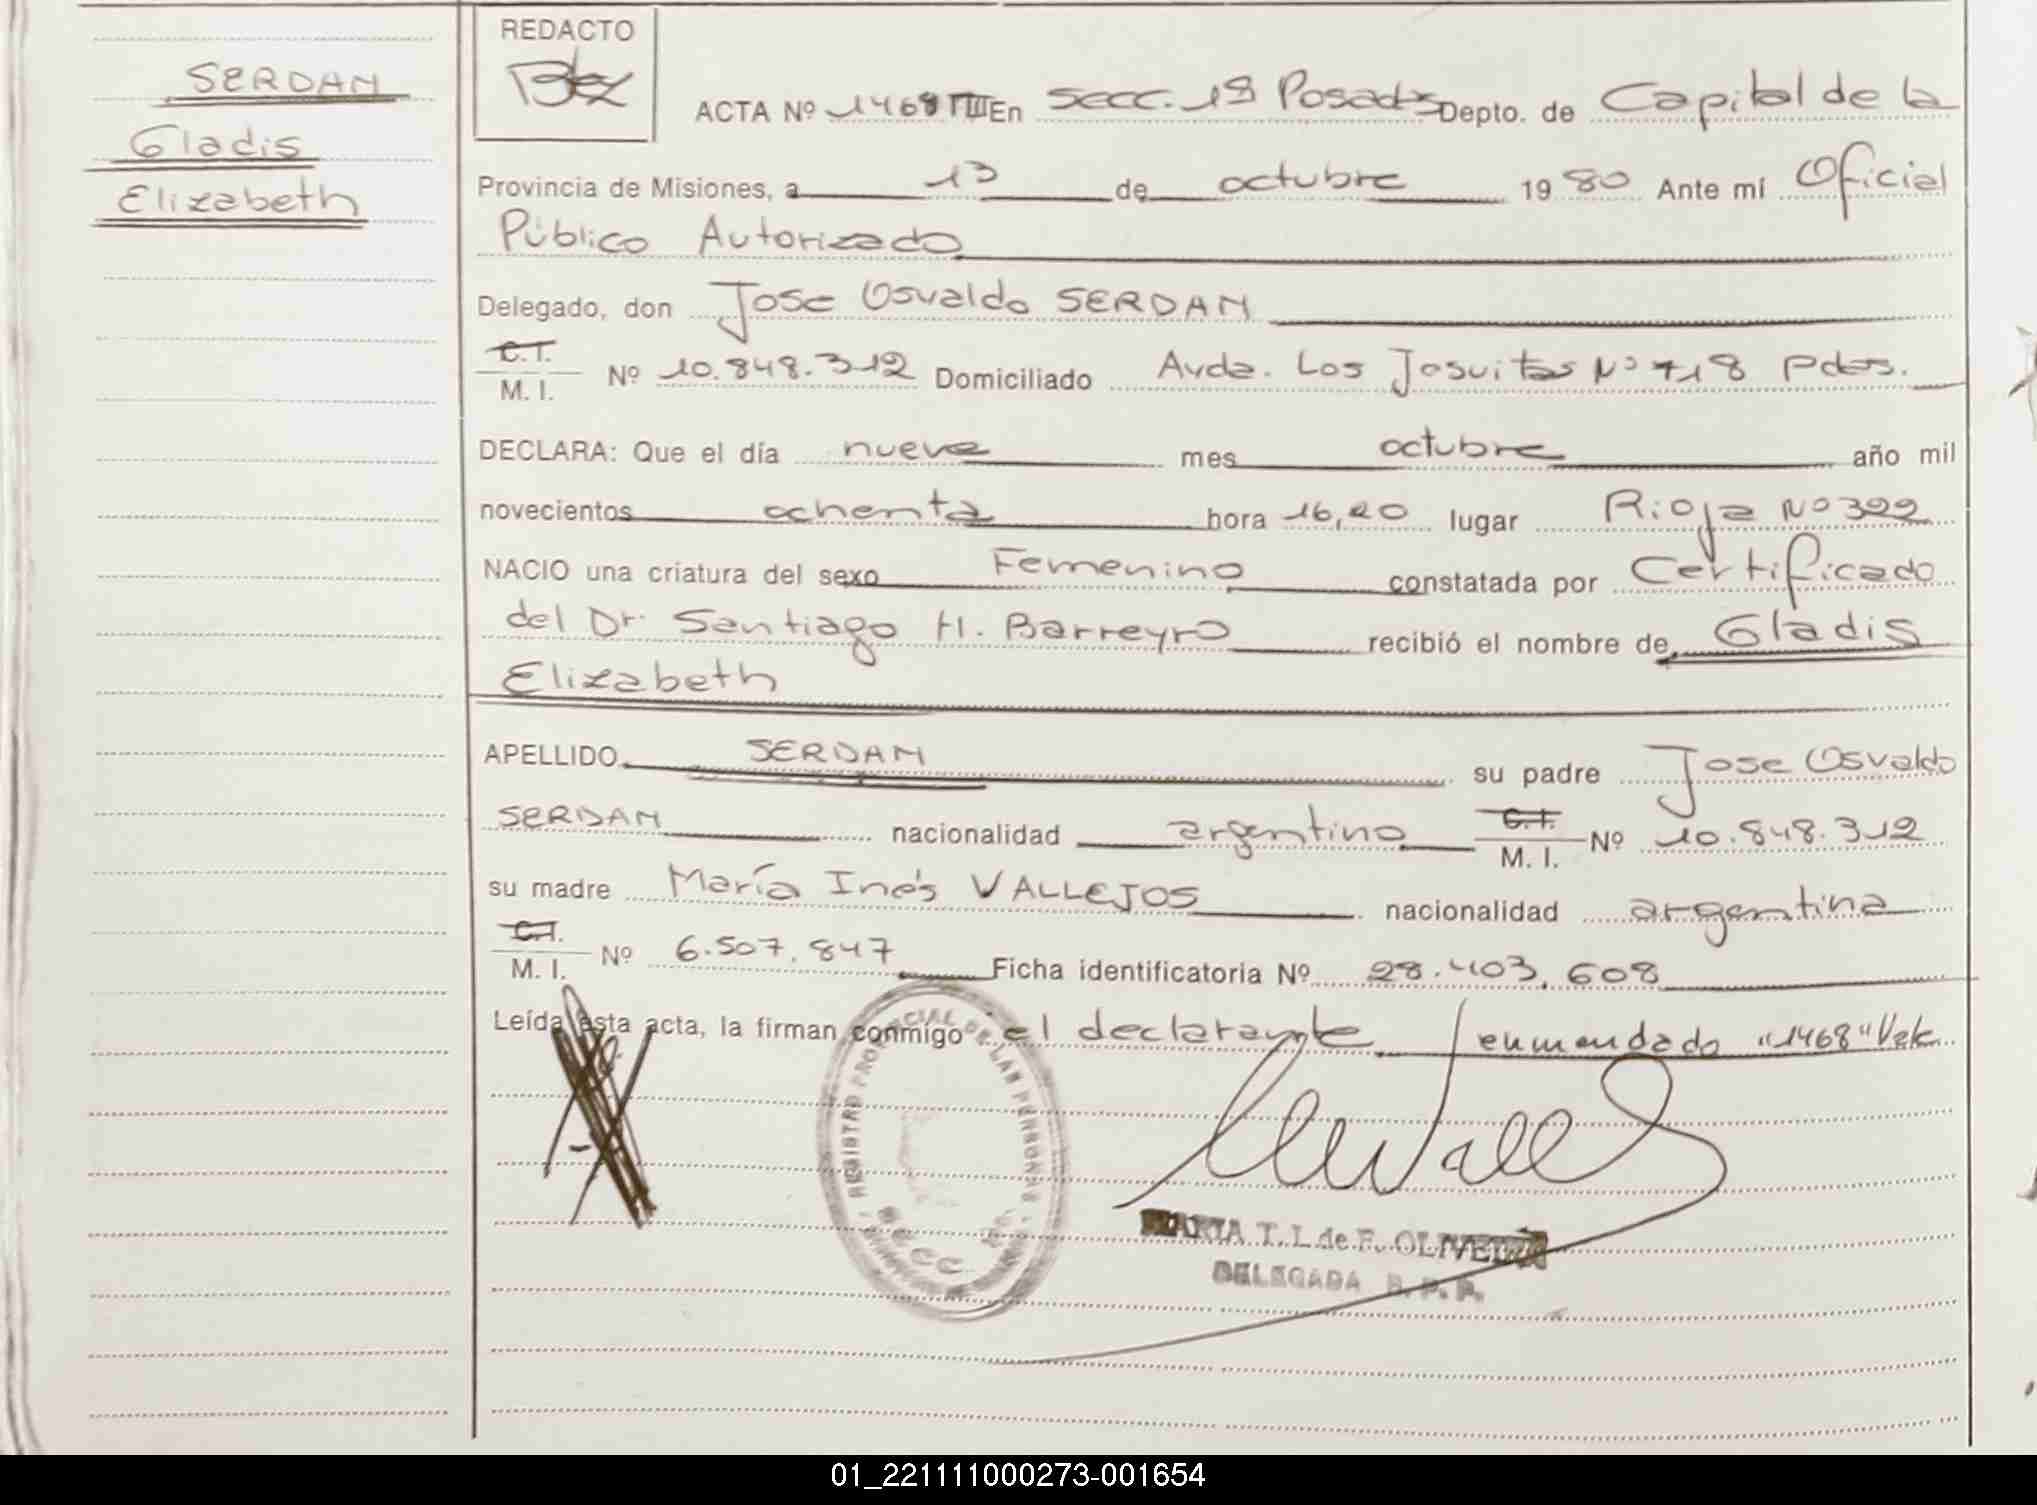 SERDAN
Gladis
Elizabeth
REDACTO
ACTA Nº 1468 TIII En Secc. 1ª Posadas Depto. de Capital de la
Provincia de Misiones, a 13 de octubre 1980 Ante mí Oficial
Público Autorizado
Delegado, don Jose Osvaldo SERDAN
C.I. M. I. Nº 10.848.312 Domiciliado Avda. Los Jesuitas Nº 718 Pdas.
DECLARA: Que el día nueve mes octubre año mil
novecientos ochenta hora 16,20 lugar Rioja Nº 322
NACIO una criatura del sexo Femenino constatada por Certificado
del Dr. Santiago H. Barreyro recibió el nombre de Gladis
Elizabeth
APELLIDO SERDAN su padre Jose Osvaldo
SERDAN nacionalidad argentino C.I. M. I. Nº 10.848.312
su madre María Inés VALLEJOS nacionalidad argentina
C.I. M. I. Nº 6.507.847 Ficha identificatoria Nº 28.403.608
Leída esta acta, la firman conmigo el declarante enmendado "1468" Vale
REGISTRO PROVINCIAL DE LAS PERSONAS
SECC.
MARIA T. I. de F. OLIVEIRA
DELEGADA R. P. P.
01_221111000273-001654